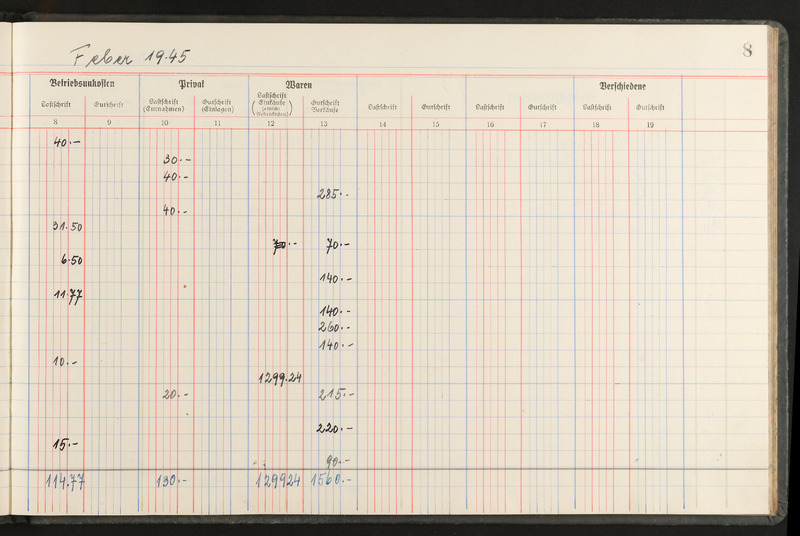 8
Feber 1945
Betriebsunkosten Privat Waren Verschiedene
Lastschrift Gutschrift Lastschrift (Entnahmen) Gutschrift (Einlagen) Lastschrift (Einkäufe) Gutschrift Verkäufe Lastschrift Gutschrift Lastschrift Gutschrift Lastschrift Gutschrift
8 9 10 11 12 13 14 15 16 17 18 19
40.–
30.–
40.–
285.–
40.–
31.50
70.– 70.–
6.50
140.–
11.77
140.–
260.–
140.–
10.–
1299.24
20.– 215.–
220.–
15.–
90.–
114.77 130.– 129924 1560.–